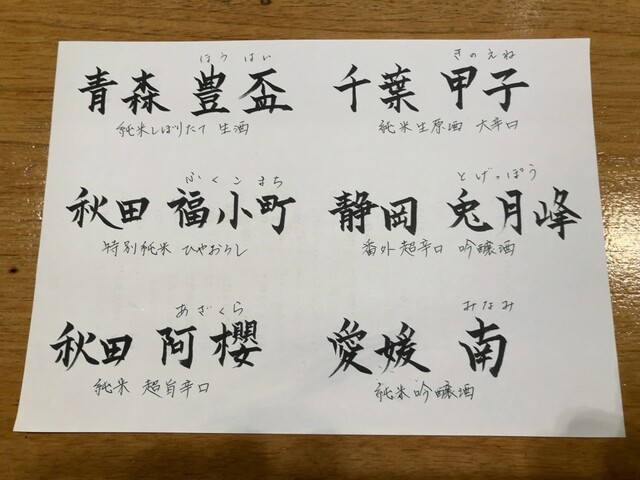 ほうはい
青森 豊盃
純米しぼりたて 生酒
きのえね
千葉 甲子
純米生原酒 大辛口
ふくこまち
秋田 福小町
特別純米 ひやおろし
とげっぽう
静岡 兎月峰
番外超辛口 吟醸酒
あざくら
秋田 阿櫻
純米 超旨辛口
みなみ
愛媛 南
純米吟醸酒